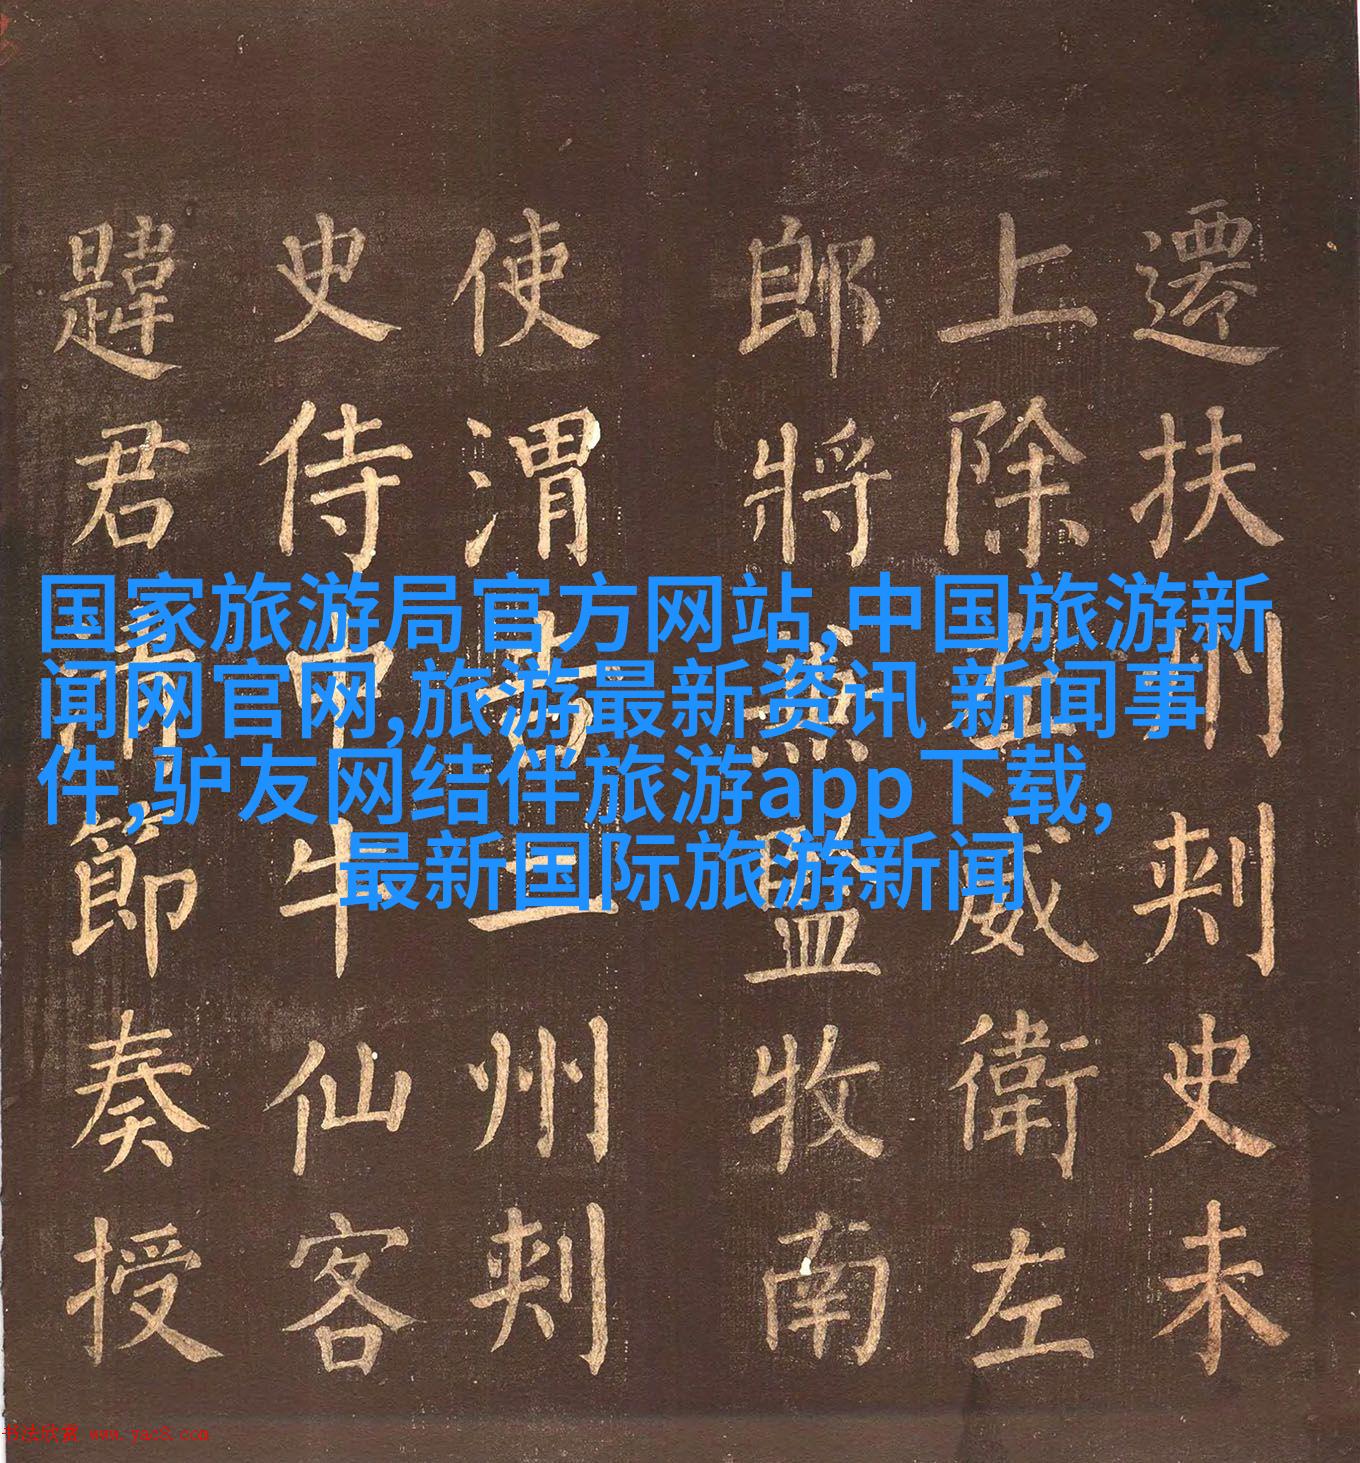 遷扶州刺史未
上除左威衛左
郎將兼監牧南
使渭吉二州刺
史侍中牛仙客
韙君清節奏授
国家旅游局官方网站,中国旅游新
闻网官网,旅游最新资讯 新闻事
件,驴友网结伴旅游app下载,
最新国际旅游新闻
书法欣赏 www.yac8.com